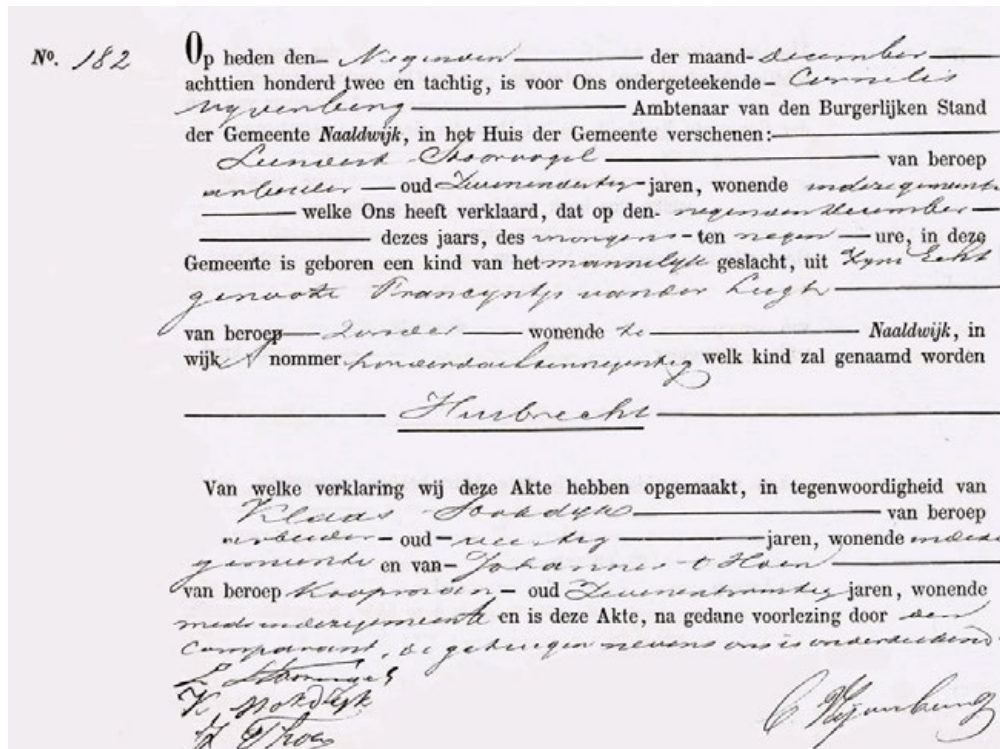 No. 182 Op heden den Negenden der maand december
achttien honderd twee en tachtig, is voor Ons ondergeteekende Cornelis
Ambtenaar van den Burgerlijken Stand
der Gemeente Naaldwijk, in het Huis der Gemeente verschenen:
Leendert van beroep
arbeider oud Zevenendertig jaren, wonende indezegemeente
welke Ons heeft verklaard, dat op den negendendecember
dezes jaars, des morgens ten negen ure, in deze
Gemeente is geboren een kind van het mannelijk geslacht, uit Zyne Echt
genoote Francyntje vander Lugt
van beroep Zonder wonende te Naaldwijk, in
wijk A nommer honderdachtennegentig welk kind zal genaamd worden
Huibrecht
Van welke verklaring wij deze Akte hebben opgemaakt, in tegenwoordigheid van
Klaas van beroep
arbeider oud veertig jaren, wonende indeze
gemeente en van Johannes t Hoen
van beroep Koopman oud Zevenentwintig jaren, wonende
mede indezegemeente en is deze Akte, na gedane voorlezing door den
Comparant, de getuigen nevens ons onderteekend